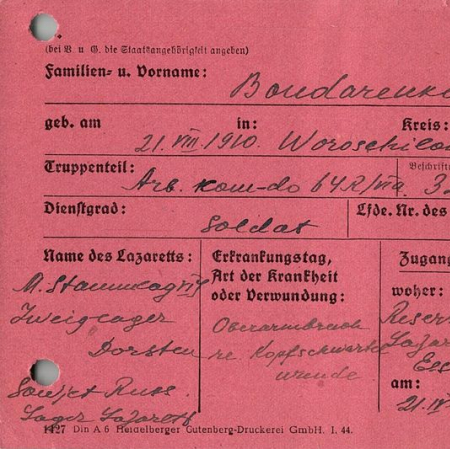 (bei V. u. G. die Staatsangehörigkeit angeben)
Familien- u. Vorname:
Bondarenko
geb. am in: Kreis:
21. VIII 1910 Woroschilo
Truppenteil: Beschrift
Arb. kom-do 64R/
Dienstgrad: Lfde. Nr. des
Soldat
Name des Lazaretts:
M. Stammlager
Zweiglager
Dorsten
Sowjet Russ.
Lager Lazarett
Erkrankungstag,
Art der Krankheit
oder Verwundung:
Oberarmbruch
re. Kopfschwarte
wunde
Zugang
woher:
Reserv
Lazar
Ess
am:
21.
1427 Din A 6 Heidelberger Gutenberg-Druckerei GmbH. I. 44.